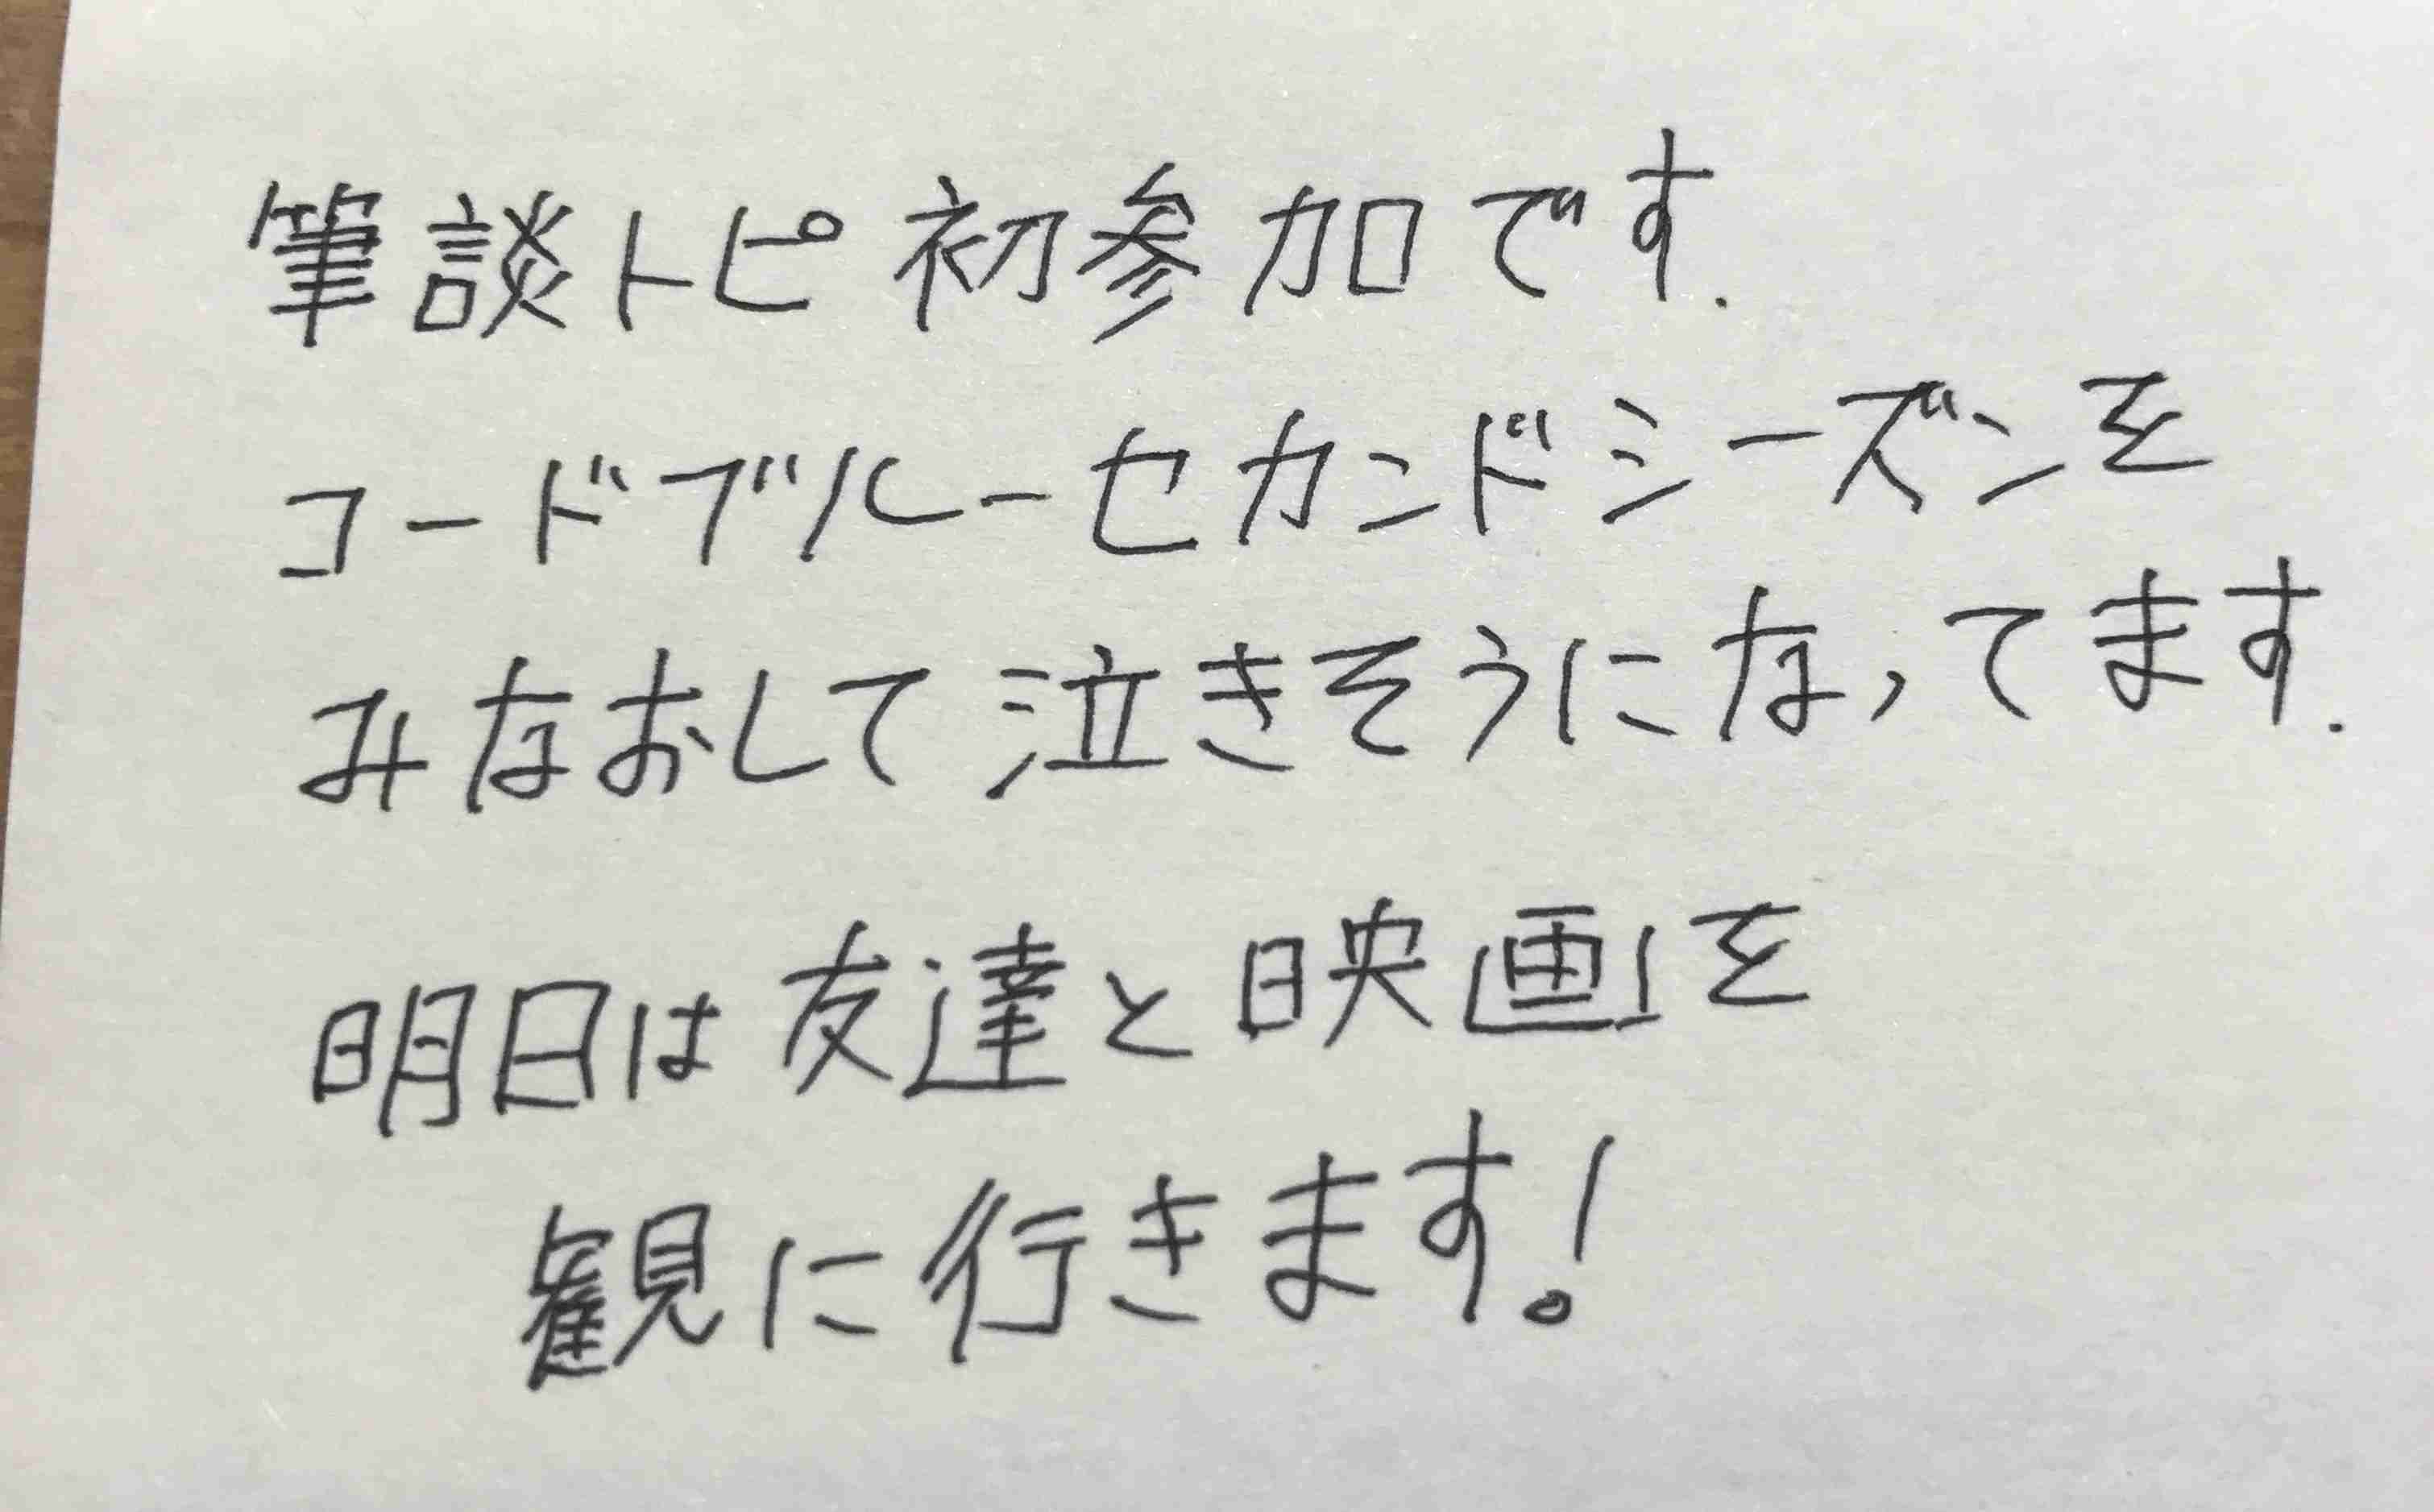 筆談トピ初参加です.
コードブルーセカンドシーズンを
みなおして泣きそうになってます.
明日は友達と映画を
観に行きます!